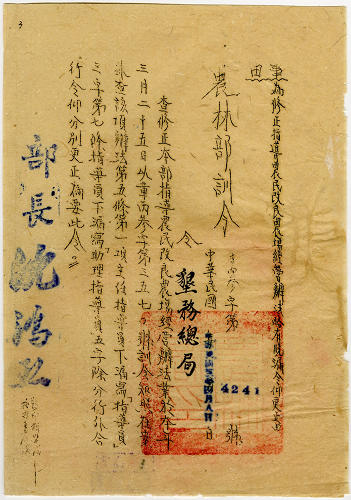 3
事由
為修正指導農民改良農場經營辦法令仰更正由
農林部訓令
字第 號
中華民國
4241
令墾務總局
查修正本部指導農民改良農場經營辦法業於本年
三月二十五日以章丙參字第三五七〇號訓令知照在案
茲查該項辦法第五條第一項主任指導員下漏寫「指導員」
三字第七條指導員下漏寫「助理指導員」五字除分行外合
行令仰分別更正為要此令。
部長 沈鴻烈